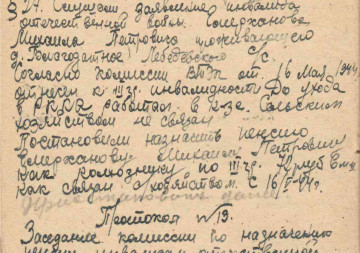 § 24. Слушали заявление инвалида
отечественной войны Смерканова
Михаила Петровича проживающего
д. Благодатное Лебедевского с/с.
Согласно комиссии ВТЭК от 16 мая 1944
отнесен к III гр. инвалидности До ухода
в РККА работал в к-зе. Сельским
хозяйством не связан
Постановили назначить пенсию
Смерканову Михаилу Петровичу
как колхознику по III гр.
как связан с хозяйством. С 16/V-44г.
Протокол № 13.
Заседание комиссии по назначению
пенсии инвалидам отечественной